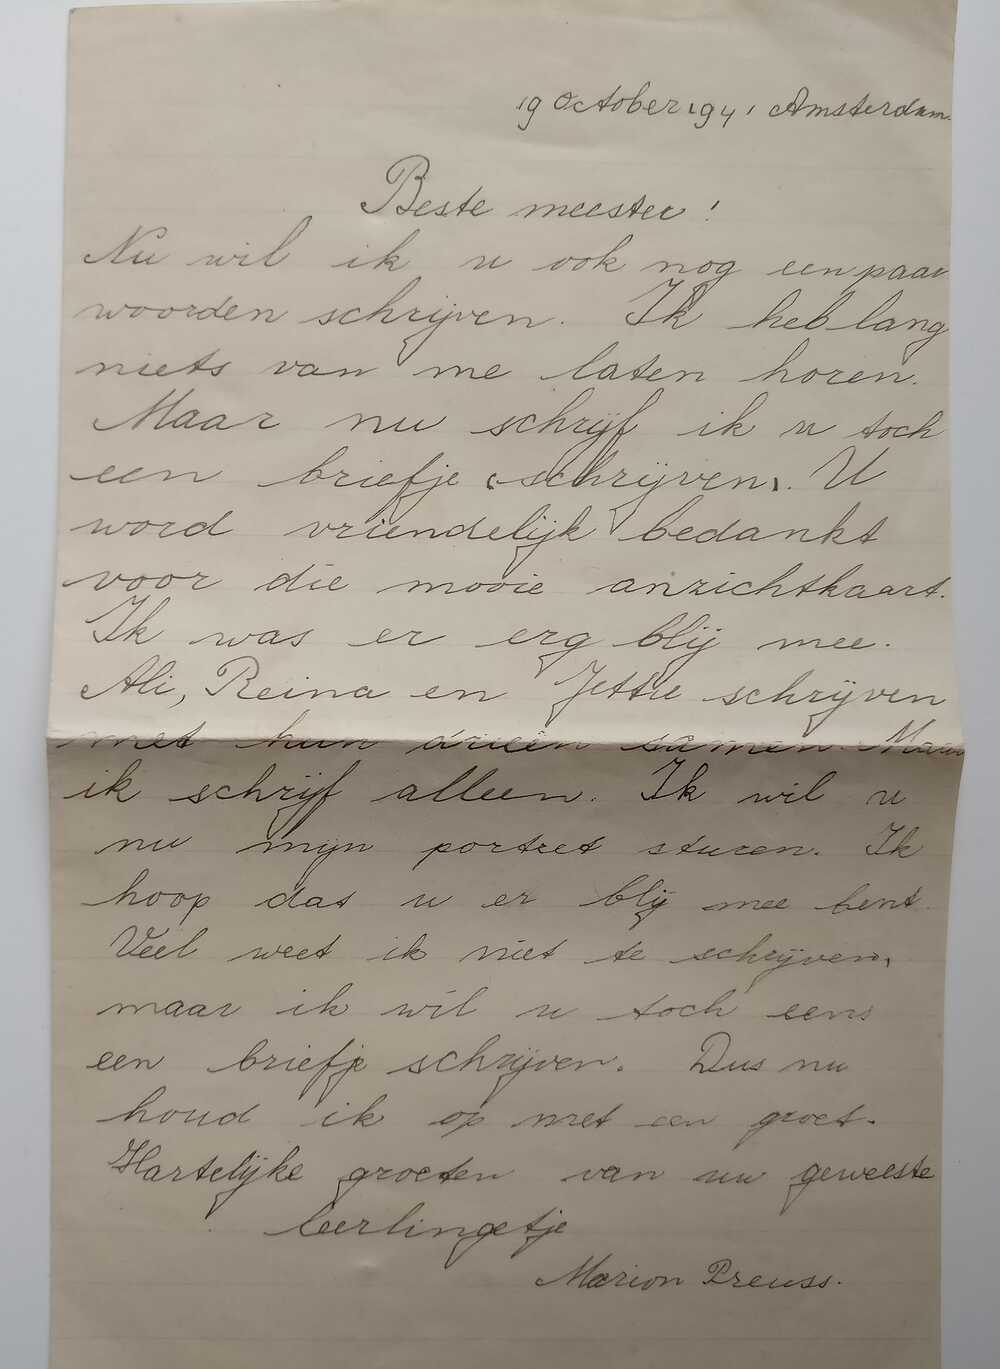 19 October 1941 Amsterdam.
Beste meester!
Nu wil ik u ook nog een paar
woorden schrijven. Ik heb lang
niets van me laten horen.
Maar nu schrijf ik u toch
een briefje (schrijven). U
word vriendelijk bedankt
voor die mooie anzichtkaart.
Ik was er erg blij mee.
Ali, Reina en Jettie schrijven
met hun drieën samen. Maar
ik schrijf alleen. Ik wil u
nu mijn portret sturen. Ik
hoop dat u er blij mee bent.
Veel weet ik niet te schrijven,
maar ik wil u toch eens
een briefje schrijven. Dus nu
houd ik op met een groet.
Hartelijke groeten van uw geweeste
leerlingetje
Marion Preuss.